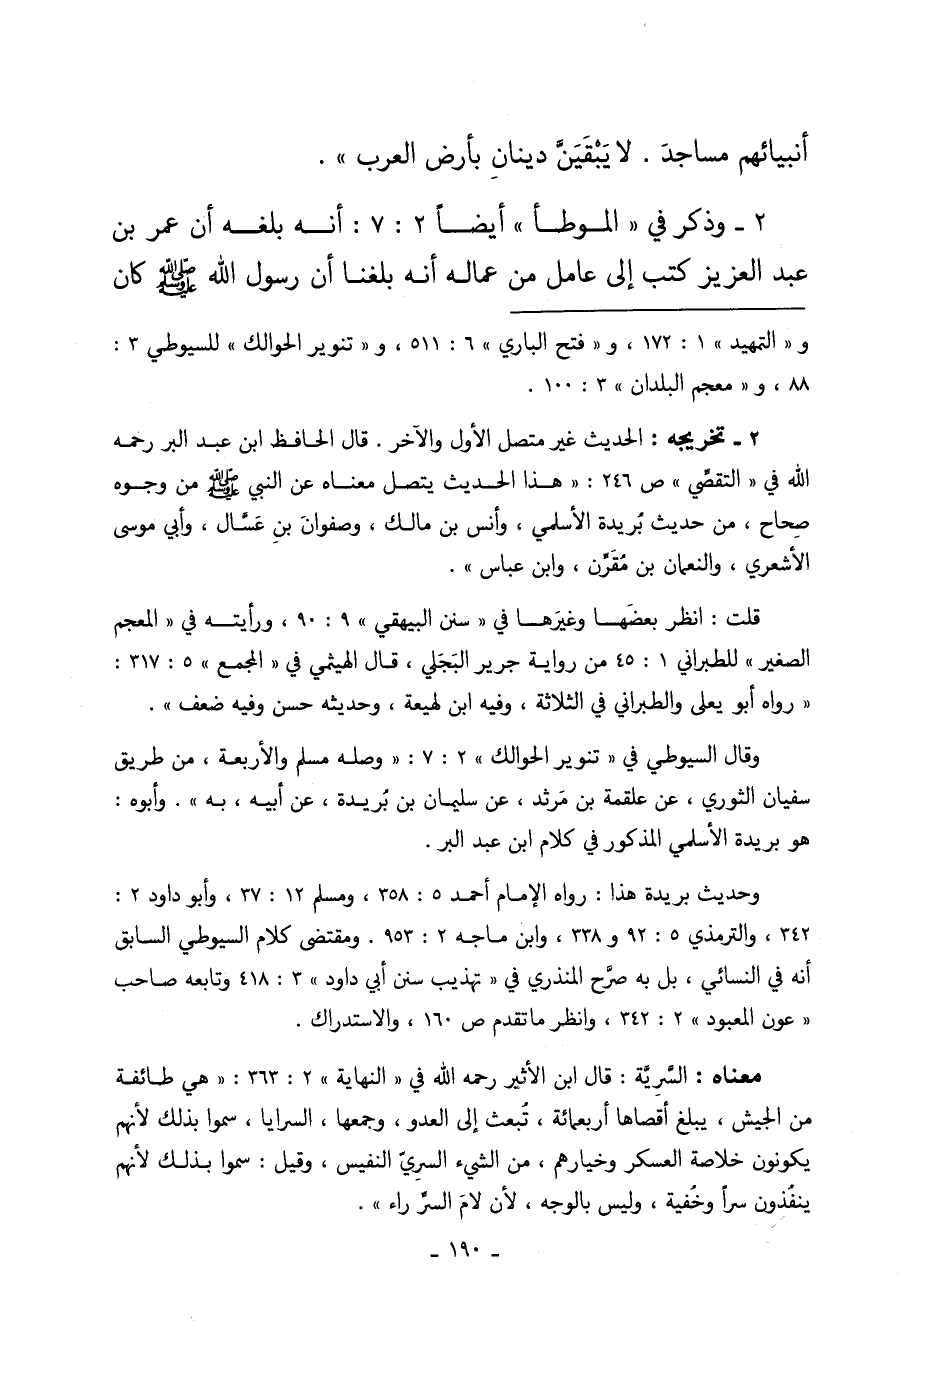 أنبيائهم مساجدَ . لا يَبْقَيَنَّ دينانِ بأرض العرب » .
٢ ـ وذكر في « الموطأ » أيضاً ٢ : ٧ : أنه بلغه أن عمر بن
عبد العزيز كتب إلى عامل من عماله أنه بلغنا أن رسول الله ﷺ كان
و « التمهيد » ١ : ١٧٢ ، و « فتح الباري » ٦ : ٥١١ ، و « تنوير الحوالك » للسيوطي ٣ :
٨٨ ، و « معجم البلدان » ٣ : ١٠٠ .
٢ ـ تخريجه : الحديث غير متصل الأول والآخر . قال الحافظ ابن عبد البر رحمه
الله في « التقصّي » ص ٢٤٦ : « هذا الحديث يتصل معناه عن النبي ﷺ من وجوه
صِحاح ، من حديث بُريدة الأسلمي ، وأنس بن مالك ، وصفوانَ بنِ عَسَّال ، وأبي موسى
الأشعري ، والنعمان بن مُقَرِّن ، وابن عباس » .
قلت : انظر بعضَها وغيرَها في « سنن البيهقي » ٩ : ٩٠ ، ورأيته في « المعجم
الصغير » للطبراني ١ : ٤٥ من رواية جرير البَجَلي ، قال الهيثمي في « المجمع » ٥ : ٣١٧ :
« رواه أبو يعلى والطبراني في الثلاثة ، وفيه ابن لهيعة ، وحديثه حسن وفيه ضعف » .
وقال السيوطي في « تنوير الحوالك » ٢ : ٧ : « وصله مسلم والأربعة ، من طريق
سفيان الثوري ، عن علقمة بن مَرثد ، عن سليمان بن بُريدة ، عن أبيه ، به » . وأبوه :
هو بريدة الأسلمي المذكور في كلام ابن عبد البر .
وحديث بريدة هذا : رواه الإمام أحمد ٥ : ٣٥٨ ، ومسلم ١٢ : ٣٧ ، وأبو داود ٢ :
٣٤٢ ، والترمذي ٥ : ٩٢ و ٣٣٨ ، وابن ماجه ٢ : ٩٥٣ . ومقتضى كلام السيوطي السابق
أنه في النسائي ، بل به صرَّح المنذري في « تهذيب سنن أبي داود » ٣ : ٤١٨ وتابعه صاحب
« عون المعبود » ٢ : ٣٤٢ ، وانظر ماتقدم ص ١٦٠ ، والاستدراك .
معناه : السَّرِيَّة : قال ابن الأثير رحمه الله في « النهاية » ٢ : ٣٦٣ : « هي طائفة
من الجيش ، يبلغ أقصاها أربعمائة ، تُبعث إلى العدو ، وجمعها ، السرايا ، سموا بذلك لأنهم
يكونون خلاصة العسكر وخيارهم ، من الشيء السريّ النفيس ، وقيل : سموا بذلك لأنهم
ينفُذون سراً وخُفية ، وليس بالوجه ، لأن لامَ السرِّ راء » .
ـ ١٩٠ ـ